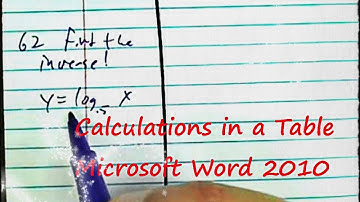 62 Find the
inverse!
y = log.5 x
Calculations in a Table
Microsoft Word 2010